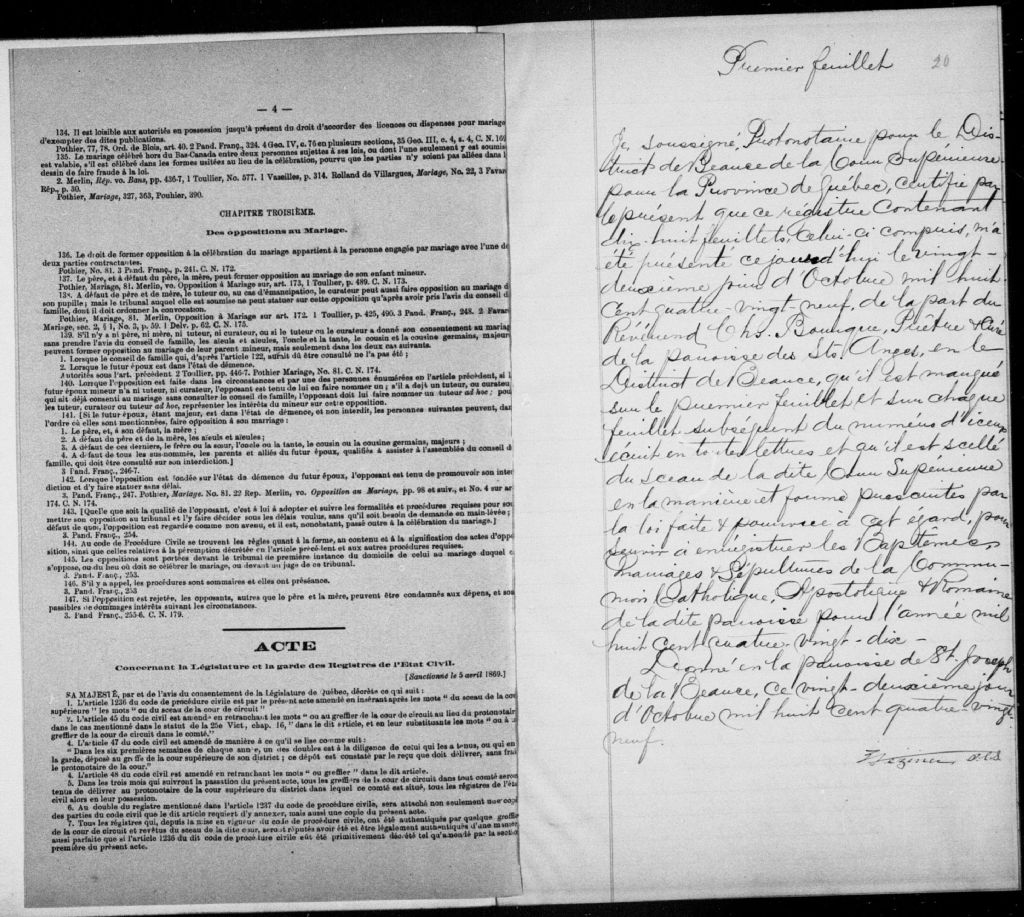 — 4 —
134. Il est loisible aux autorités en possession jusqu'à présent du droit d'accorder des licences ou dispenses pour mariage
d'exempter des dites publications.
Pothier, 77, 78. Ord. de Blois, art. 40. 2 Pand. Franç., 324. 4 Geo. IV, c. 76 en plusieurs sections, 35 Geo. III, c. 4, s. 4, C. N. 169
135. Le mariage célébré hors du Bas-Canada entre deux personnes sujettes à ses lois, ou dont l'une seulement y est soumis
est valable, s'il est célébré dans les formes usitées au lieu de la célébration, pourvu que les parties n'y soient pas allées dans l
dessin de faire fraude à la loi.
2. Merlin, Rép. vo. Bans, pp. 436-7, 1 Toullier, No. 577. 1 Vaseilles, p. 314. Rolland de Villargues, Mariage, No. 22, 3 Favar
Rép., p. 30.
Pothier, Mariage, 327, 363, Pouhier, 390.
CHAPITRE TROISIÈME.
Des oppositions au Mariage.
136. Le droit de former opposition à la célébration du mariage appartient à la personne engagée par mariage avec l'une de
deux parties contractantes.
Pothier, No. 81. 3 Pand. Franç., p. 241. C. N. 172.
137. Le père, et à défaut du père, la mère, peut former opposition au mariage de son enfant mineur.
Pothier, Mariage, 81. Merlin, vo. Opposition à Mariage sur, art. 173, 1 Toullier, p. 489. C. N. 173.
138. A défaut de père et de mère, le tuteur ou, au cas d'émancipation, le curateur peut aussi faire opposition au mariage d
son pupille; mais le tribunal auquel elle est soumise ne peut statuer sur cette opposition qu'après avoir pris l'avis du conseil d
famille, dont il doit ordonner la convocation.
Pothier, Mariage, 81. Merlin, Opposition à Mariage sur art. 172. 1 Toullier, p. 425, 490. 3 Pand. Franç., 248. 2 Favar
Mariage, sec. 2, § 1, No. 3, p. 59. 1 Delv. p. 62. C. N. 175.
139. S'il n'y a ni père, ni mère, ni tuteur, ni curateur, ou si le tuteur ou le curateur a donné son consentement au mariag
sans prendre l'avis du conseil de famille, les aïeuls et aïeules, l'oncle et la tante, le cousin et la cousine germains, majeur
peuvent former opposition au mariage de leur parent mineur, mais seulement dans les deux cas suivants.
1. Lorsque le conseil de famille qui, d'après l'article 122, aurait dû être consulté ne l'a pas été;
2. Lorsque le futur époux est dans l'état de démence.
Autorités sous l'art. précédent. 2 Toullier, pp. 446-7. Pothier Mariage, No. 81. C. N. 174.
140. Lorsque l'opposition est faite dans les circonstances et par une des personnes énumérées en l'article précédent, si l
futur époux mineur n'a ni tuteur, ni curateur, l'opposant est tenu de lui en faire nommer un; s'il a déjà un tuteur, ou curateur
qui ait déjà consenti au mariage sans consulter le conseil de famille, l'opposant doit lui faire nommer un tuteur ad hoc; pou
les tuteur, curateur ou tuteur ad hoc, représenter les intérêts du mineur sur cette opposition.
141. [Si le futur époux, étant majeur, est dans l'état de démence, et non interdit, les personnes suivantes peuvent, dan
l'ordre où elles sont mentionnées, faire opposition à son mariage:
1. Le père, et, à son défaut, la mère;
2. A défaut du père et de la mère, les aïeuls et aïeules;
3. A défaut de ces derniers, le frère ou la sœur, l'oncle ou la tante, le cousin ou la cousine germains, majeurs;
4. A défaut de tous les sus-nommés, les parents et alliés du futur époux, qualifiés à assister à l'assemblée du conseil d
famille, qui doit être consulté sur son interdiction.]
3 Pand. Franç., 246-7.
142. Lorsque l'opposition est fondée sur l'état de démence du futur époux, l'opposant est tenu de promouvoir son inter
diction et d'y faire statuer sans délai.
3. Pand. Franç., 247. Pothier, Mariage. No. 81. 22 Rep. Merlin, vo. Opposition au Mariage, pp. 98 et suiv., et No. 4 sur ar
174. C. N. 174.
143. [Quelle que soit la qualité de l'opposant, c'est à lui à adopter et suivre les formalités et procédures requises pour so
mettre son opposition au tribunal et l'y faire décider sous les délais voulus, sans qu'il soit besoin de demande en main-levée;
défaut de quoi, l'opposition est regardée comme non avenu, et il est, nonobstant, passé outre à la célébration du mariage.]
3. Pand. Franç., 254.
144. Au code de Procédure Civile se trouvent les règles quant à la forme, au contenu et à la signification des actes d'oppo
sition, ainsi que celles relatives à la péremption décrétée en l'article précédent et aux autres procédures requises.
145. Les oppositions sont portées devant le tribunal de première instance du domicile de celui au mariage duquel o
s'oppose, ou du lieu où doit se célébrer le mariage, ou devant un juge de ce tribunal.
3. Pand. Franç., 253.
146. S'il y a appel, les procédures sont sommaires et elles ont préséance.
3. Pand. Franç., 253
147. Si l'opposition est rejetée, les opposants, autres que le père et la mère, peuvent être condamnés aux dépens, et son
passibles de dommages intérêts suivant les circonstances.
3. Pand Franç., 255-6. C. N. 179.
ACTE
Concernant la Législature et la garde des Registres de l'Etat Civil.
[Sanctionné le 5 avril 1869.]
SA MAJESTÉ, par et de l'avis du consentement de la Législature de Québec, décrète ce qui suit:
1. L'article 1236 du code de procédure civile est par le présent acte amendé en insérant après les mots "du sceau de la cou
supérieure" les mots "ou du sceau de la cour de circuit"
2. L'article 45 du code civil est amendé en retranchant les mots "ou au greffier de la cour de circuit au lieu du protonotaire
dans le cas mentionné dans le statut de la 25e Vict, chap. 16," dans le dit article, et en leur substituant les mots "ou à
greffier de la cour de circuit dans le comté."
4. L'article 47 du code civil est amendé de manière à ce qu'il se lise comme suit:
"Dans les six premières semaines de chaque année, un des doubles est à la diligence de celui qui les a tenus, ou qui en
la garde, déposé au greffe de la cour supérieure de son district; ce dépôt est constaté par le reçu que doit délivrer, sans frai
le protonotaire de la cour."
4. L'article 48 du code civil est amendé en retranchant les mots "ou greffier" dans le dit article.
5. Dans les trois mois qui suivront la passation du présent acte, tous les greffiers de la cour de circuit dans tout comté seron
tenus de délivrer au protonotaire de la cour supérieure du district dans lequel ce comté est situé, tous les régistres de l'éta
civil alors en leur possession.
6. Au double du registre mentionné dans l'article 1237 du code de procédure civile, sera attaché non seulement une copi
des parties du code civil que le dit article requiert d'y annexer, mais aussi une copie du présent acte.
7. Tous les régistres qui, depuis la mise en vigueur du code de procédure civile, ont été authentiqués par quelque greffie
de la cour de circuit et revêtus du sceau de la dite cour, seront réputés avoir été et être légalement authentiqués d'une manière
aussi parfaite que si l'article 1236 du dit code de procédure civile eût été primitivement décrété tel qu'amendé par la sectio
première du présent acte.
Premier feuillet 20
Je, soussigné, Protonotaire pour le Dis-
trict de Beauce de la Cour Supérieure
pour la Province de Québec, certifie par
le présent que ce régistre contenant
dix-huit feuillets, celui-ci compris, m'a
été présenté ce jourd'hui le vingt-
deuxième jour d'Octobre mil huit
cent quatre-vingt neuf, de la part du
Révérend Chs. Bourque, Prêtre & Curé
de la paroisse des Sts Anges, en le
District de Beauce, qu'il est marqué
sur le premier feuillet et sur chaque
feuillet subséquent du numéro d'iceux
écrit en toutes lettres et qu'il est scellé
du sceau de la dite Cour Supérieure
en la manière et forme prescrites par
la loi faite & pourvue à cet égard, pour
servir à enrégistrer les Baptêmes,
Mariages & Sépultures de la Commu-
nion Catholique, Apostolique & Romaine
de la dite paroisse pour l'année mil
huit cent quatre-vingt-dix-
Donné en la paroisse de St. Joseph
de la Beauce, ce vingt-deuxième jour
d'Octobre mil huit cent quatre-vingt-
neuf.